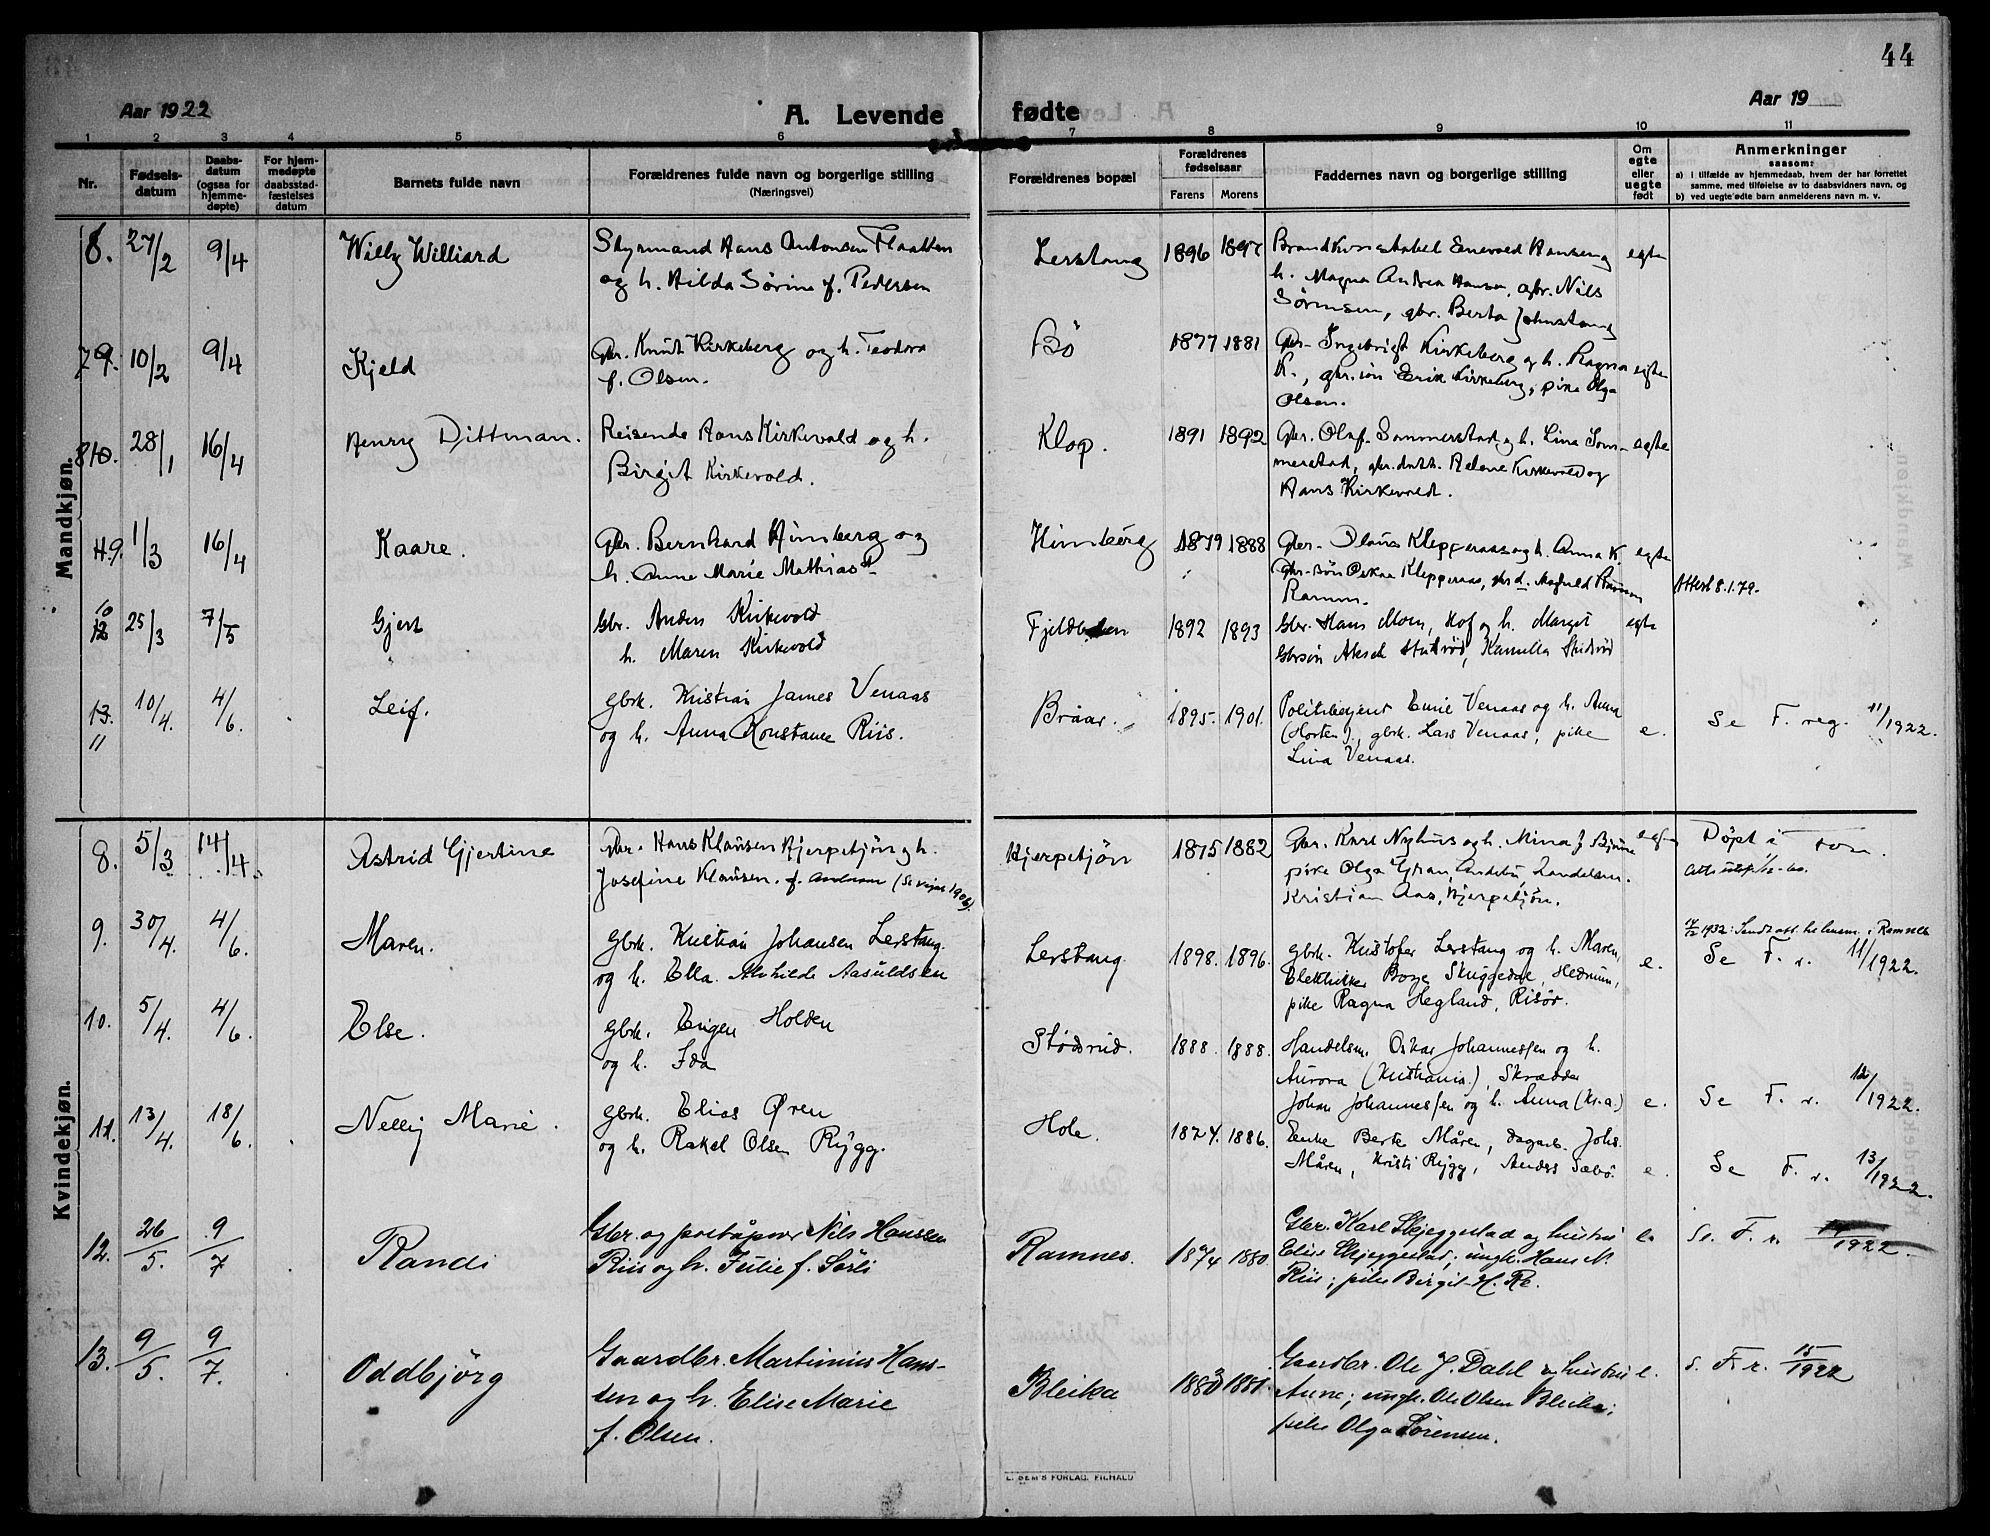 44
Aar 1922
A. Levende
fødte
Aar 19
1 2 3 4 5 6 7 8 9 10 11
Nr.
Fødsels-
datum
Daabs-
datum
(ogsaa for
hjemme-
døpte)
For hjem-
medøpte
daabsstad-
fæstelses
datum
Barnets fulde navn
Forældrenes fulde navn og borgerlige stilling
(Næringsvei)
Forældrenes bopæl
Forældrenes
fødselsaar
Farens Morens
Faddernes navn og borgerlige stilling
Om
egte
eller
uegte
født
Anmerkninger
saasom:
a) i tilfælde av hjemmedaab, hvem der har forrettet
samme, med tilføielse av to daabsvidners navn, og
b) ved uegte fødte barn anmelderens navn m. v.
Mandkjøn.
8. 27/2 9/4 Willy Williard
Styrmand Hans Antonsen Flaatten
og h. Hilda Sørine f. Pedersen
Lerstang 1896 1897
Brandkonstabel Enevold Hansen og
h. Magna Andrea Hansen, gbr. Nils
Sørensen, gbr. Berta Johnstang
egte
7 9. 10/2 9/4 Kjeld
Gbr. Knut Kirkeberg og h. Teodora
f. Olsen.
Bö 1877 1881
Gbr. Ingebrigt Kirkeberg og h. Ragna
K., gbr.sön Erik Kirkeberg, pike Olga
Olsen.
egte
8 10. 28/1 16/4 Henry Dittman.
Reisende Hans Kirkevold og h.
Birgit Kirkevold.
Klop. 1891 1892
Gbr. Olaf Sommerstad og h. Lina Som-
merstad, gbr. Helene Kirkevold og
Hans Kirkevold.
egte
11. 9. 1/3 16/4 Kaare.
Gbr. Bernhard Himberg og
h. Anne Marie Mathiasd.
Himberg 1879 1888
Gbr. Olaus Klepperaas og h. Anna K.
Gbr. sön Oskar Klepperaas,
Ramm.
egte
Attest 8.1.79.
10 12 25/3 7/5 Gjert
Gbr. Anders Kirkevold
h. Maren Kirkevold
1892 1893
Gbr. Hans Moen, Hof og h. Margit
Gbrsön Aksel Stutröd, Kamilla
egte
13. 11 10/4. 4/6. Leif.
gbrk. Kristian James Venaas
og h. Anna Konstanse Riis.
Braar. 1895. 1901.
Politibetjent Emil Venaas og h. Anna
(Horten), gbrk. Lars Venaas, pike
Lina Venaas.
e.
Se F. reg. 11/1922.
Kvindekjøn.
8. 5/3 14/4. Astrid Gjertine
Gbr. Hans Klausen Hjerpetjön og h.
Josefine Klausen. f. Andersen
Hjerpetjön 1875 1882
Gbr. Karl Nyhus og h. Mina J Bjune
pike Olga Gran, Andebu,
Kristian Aas, Hjerpetjön.
Döpt i
9. 30/4. 4/6. Maren.
gbrk. Kristian Johansen Lerstang
og h. Ella Alvhilde Aasuldsen
Lerstang. 1898. 1896.
gbrk. Kristofer Lerstang og h. Maren,
Elektriker Borge Skuggedal, Hedrum,
pike Ragna Hegland, Risör.
e.
Se F. r. 11/1922.
10. 5/4. 4/6. Else.
gbrk. Eugen Holden
og h. Ida
Stödsrud. 1888. 1888.
Handelsm. Oskar Johannessen og h.
Aurora (Kristiania), Skrædder
Johan Johannessen og h. Anna (Kr.a.)
e.
Se F. r. 12/1922.
11. 13/4. 18/6. Nelly Marie.
gbrk. Elias Øren
og h. Rakel Olsen Rygg.
Hole. 1874. 1886.
Enke Berte Måren, dagarb. Johs.
Måren, Kristi Rygg, Anders Sæbö.
e.
Se F. r. 13/1922.
12. 26/5. 9/7 Randi
Gbr. og postaapner Nils Hanssen
Riis og h. Julie f. Sørli
Ramnes. 1874 1880.
Gbr. Karl Skjeggestad og hustru
Elise Skjeggestad; ungk. Hans N.
Riis; pike Birgit H. Re.
e.
Se. F. r. 14/1922.
13. 9/5. 9/7. Oddbjörg
Gaardbr. Martinius Hans-
sen og h. Elise Marie
f. Olsen.
Bleika 1883 1881.
Gaardbr. Ole J. Dahl og hustru
Anne; ungk. Ole Olsen Bleika;
pike Olga Sörensen.
e.
S. F. r. 15/1922